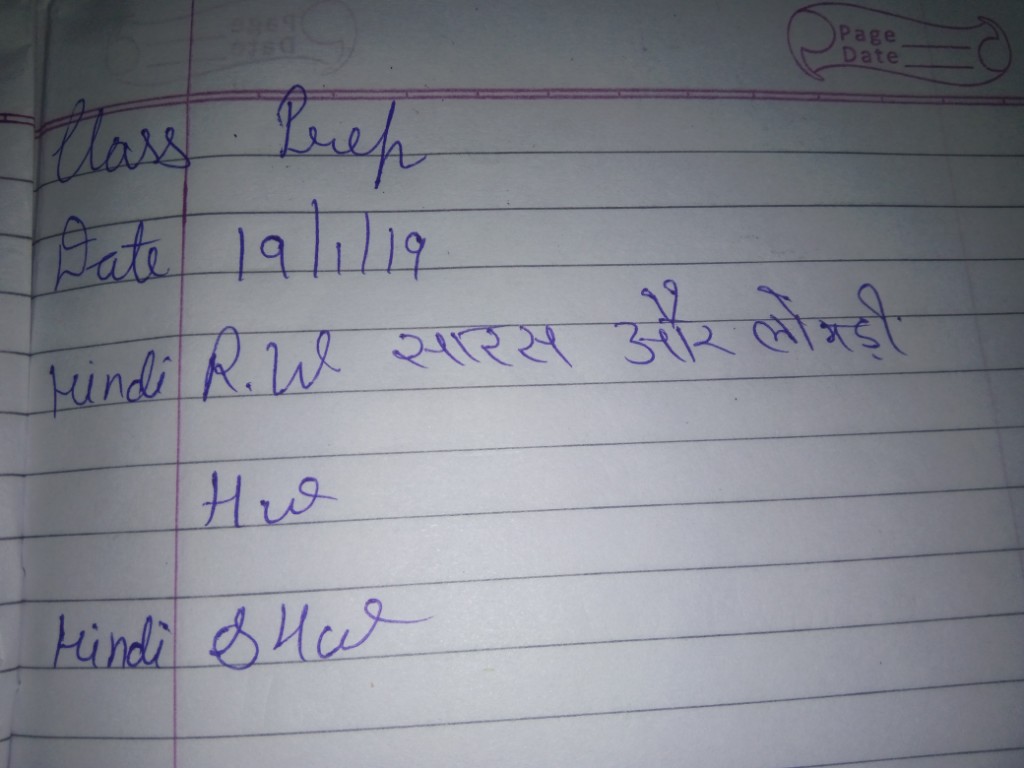 Page
Date
Class Prep
Date 19/1/19
Hindi R.W सारस और लोमड़ी
HW
Hindi S HW